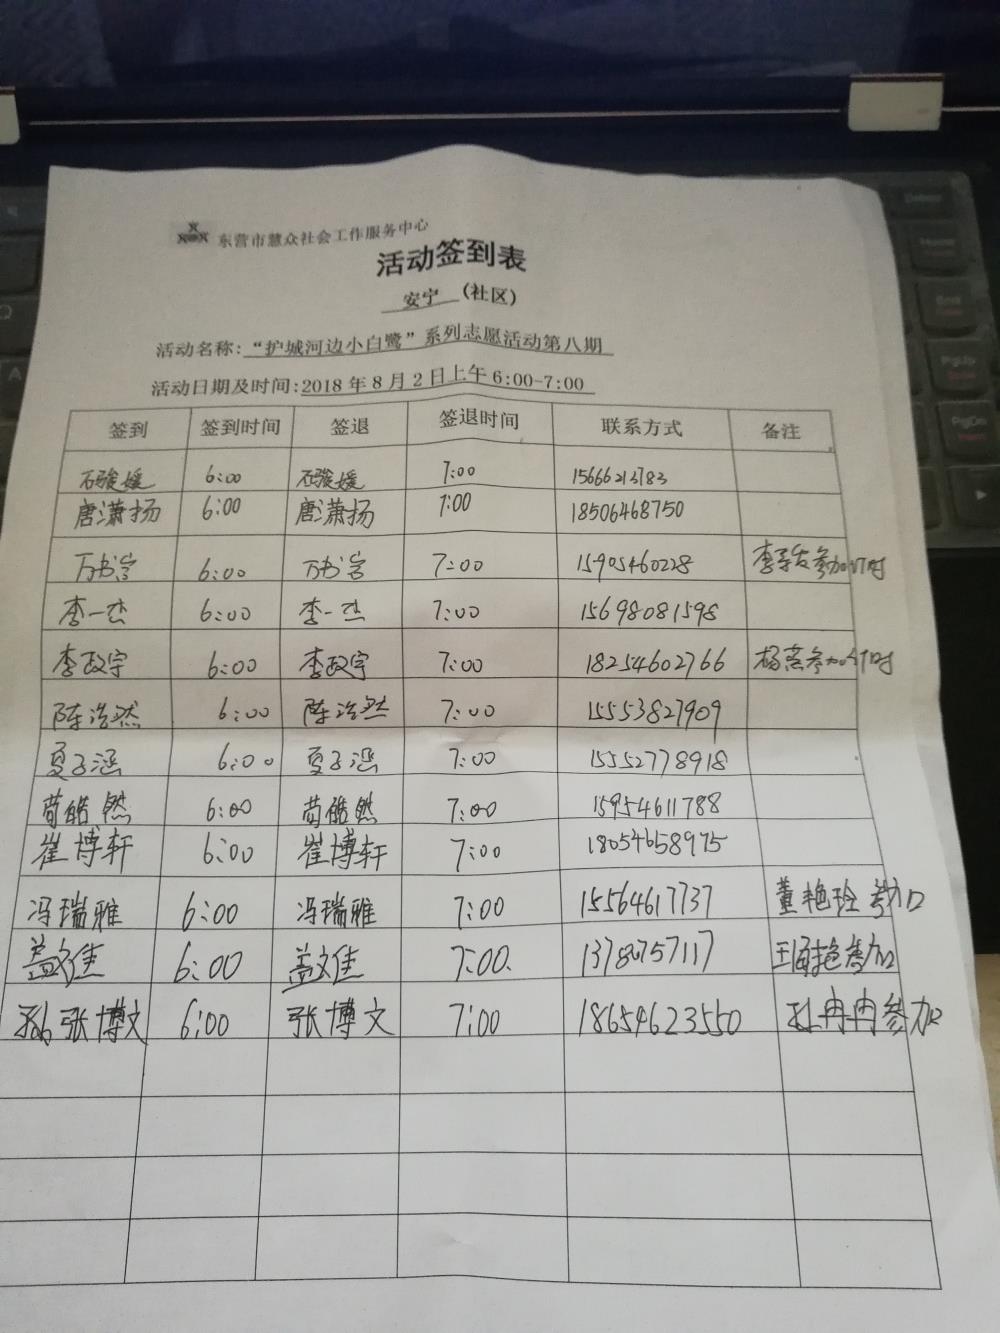 东营市慧众社会工作服务中心
活动签到表
安宁 (社区)
活动名称:“护城河边小白鹭”系列志愿活动第八期
活动日期及时间:2018年8月2日上午6:00-7:00
签到 签到时间 签退 签退时间 联系方式 备注
石骏媛 6:00 石骏媛 7:00 15666213783
唐潇扬 6:00 唐潇扬 7:00 18506468750
万书宫 6:00 万书宫 7:00 15905460228 参加1小时
李一杰 6:00 李一杰 7:00 15698081598
李政宇 6:00 李政宇 7:00 18254602766 杨燕参加1小时
陈浩然 6:00 陈浩然 7:00 15553827909
夏子涵 6:00 夏子涵 7:00 15552778918
荀皓然 6:00 荀皓然 7:00 15954611788
崔博轩 6:00 崔博轩 7:00 18054658975
冯瑞雅 6:00 冯瑞雅 7:00 15564617737 董艳玲参加
盖文佳 6:00 盖文佳 7:00. 参加
张博文 6:00 张博文 7:00 18654623550 孙冉冉参加